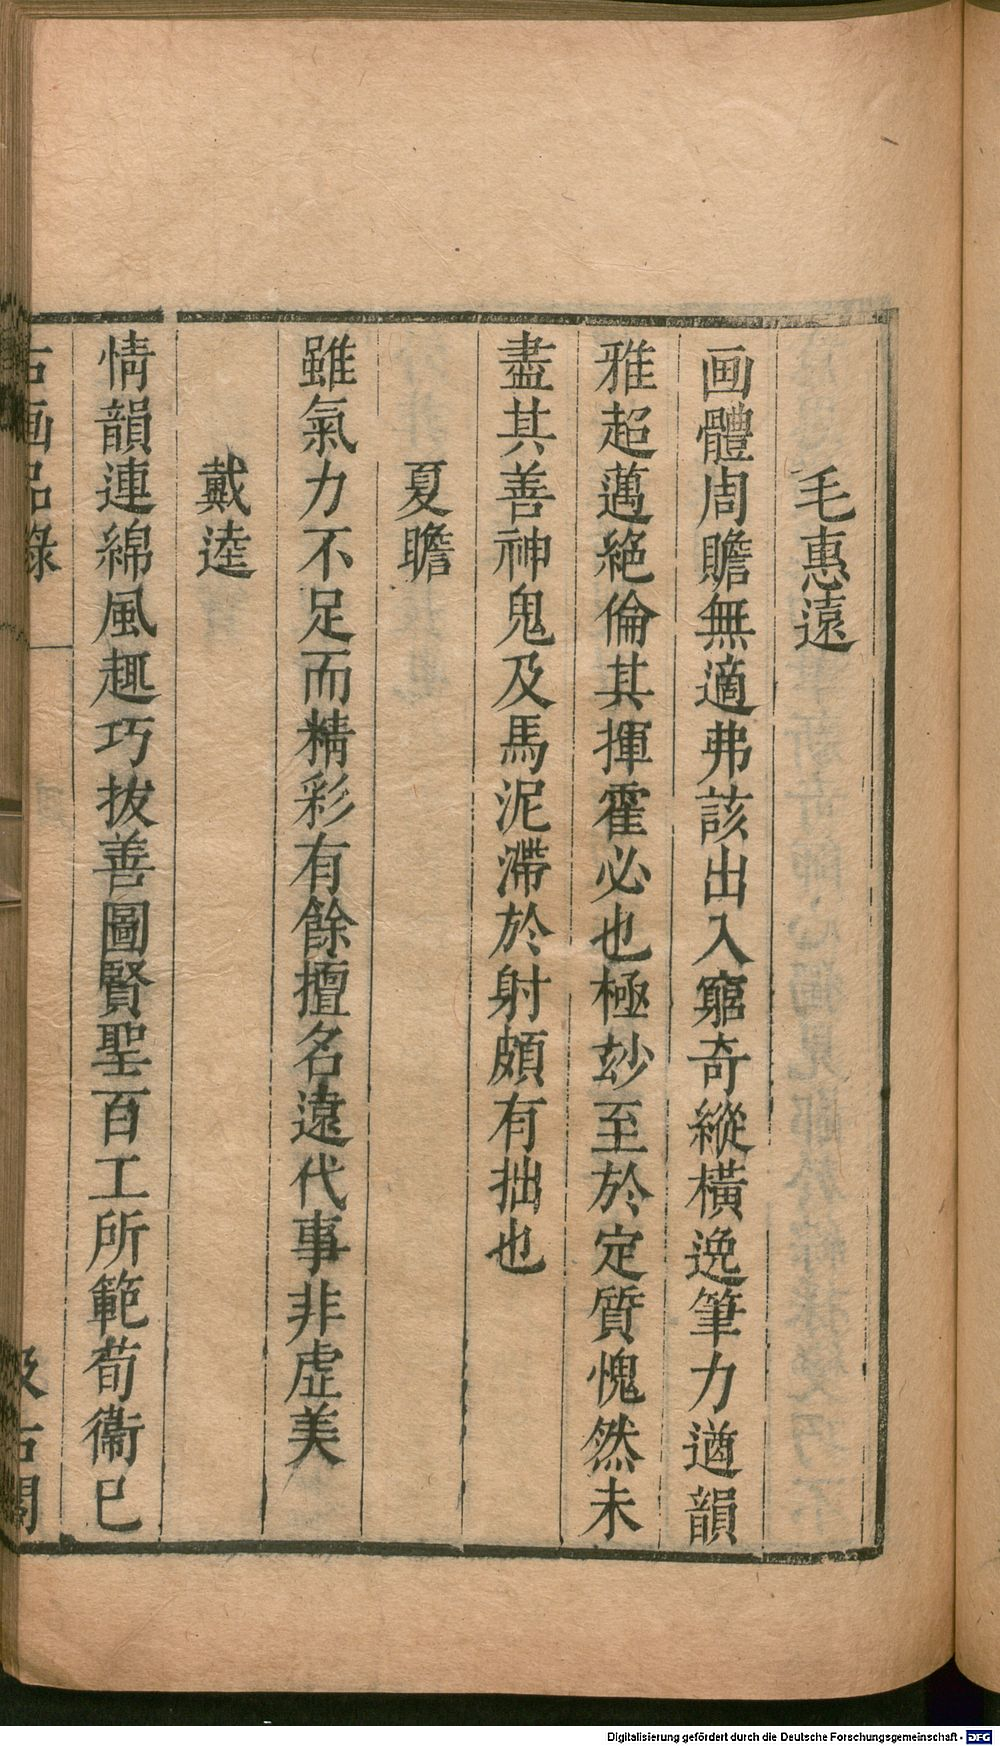 毛惠遠
画體周贍無適弗該出入窮奇縱橫逸筆力遒韻
雅超邁絕倫其揮霍必也極玅至於定質愧然未
盡其善神鬼及馬泥滯於射頗有拙也
夏瞻
雖氣力不足而精彩有餘擅名遠代事非虛美
戴逵
情韻連綿風趣巧拔善圖賢聖百工所範荀衞已
古画品錄
汲古閣
Digitalisierung gefördert durch die Deutsche Forschungsgemeinschaft - DFG